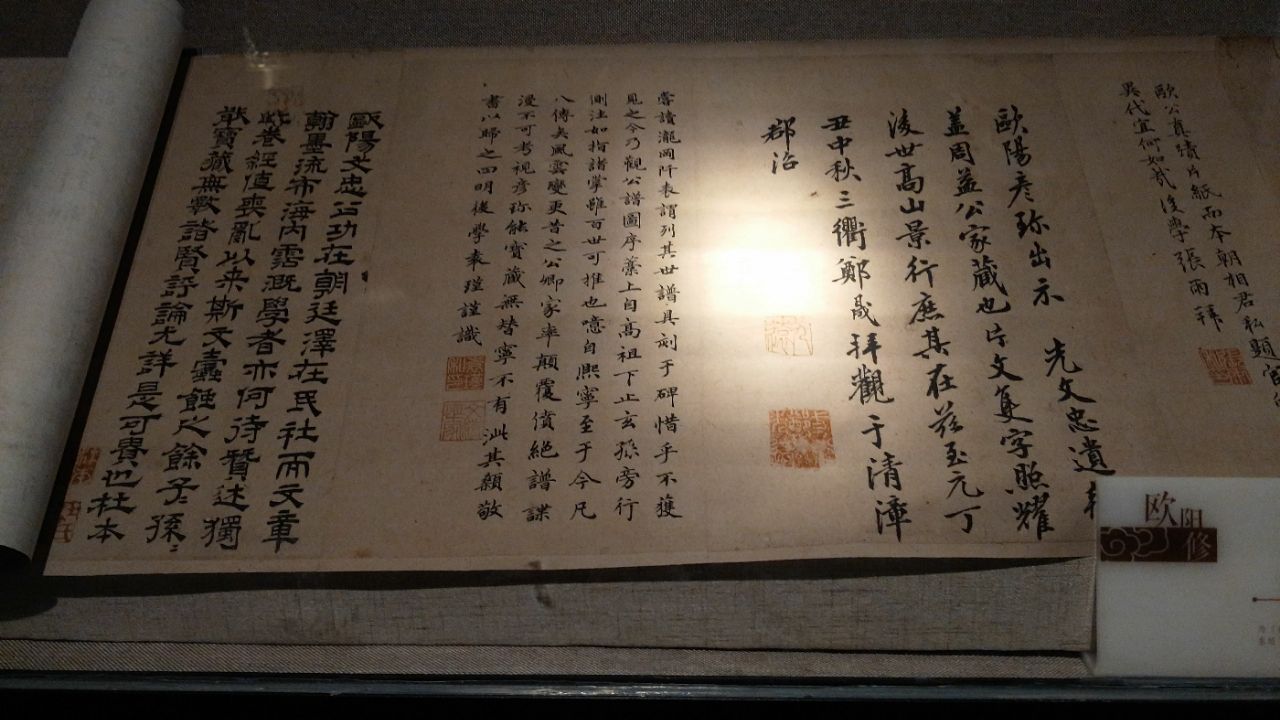 歐公真蹟片紙而本朝相君私題
異代宜何如哉後學張雨拜
歐陽彥珎出示
先文忠遺
蓋周益公家藏也片文隻字照耀
後世高山景行庶其在茲至元丁
丑中秋三衢鄭晟拜觀于清漳
郡治
嘗讀瀧岡阡表謂列其世譜具刻于碑惜乎不獲
見之今乃觀公譜圖序藁上自高祖下止玄孫旁行
側注如指諸掌雖百世可推也噫自熙寧至于今凡
八傳矣風雲變更昔之公卿家率顛覆僨絕譜諜
漫不可考視彥珎能寶藏無替寧不有泚其顙敬
書以歸之四明後學袁瑾謹識
歐陽文忠公功在朝廷澤在民社而文章
翰墨流布海內霑溉學者亦何待贊述獨
此卷經值喪亂以來斯文蠹蝕之餘子孫〻
敢寶藏無斁諸賢評論尤詳是可貴也杜本
欧阳修